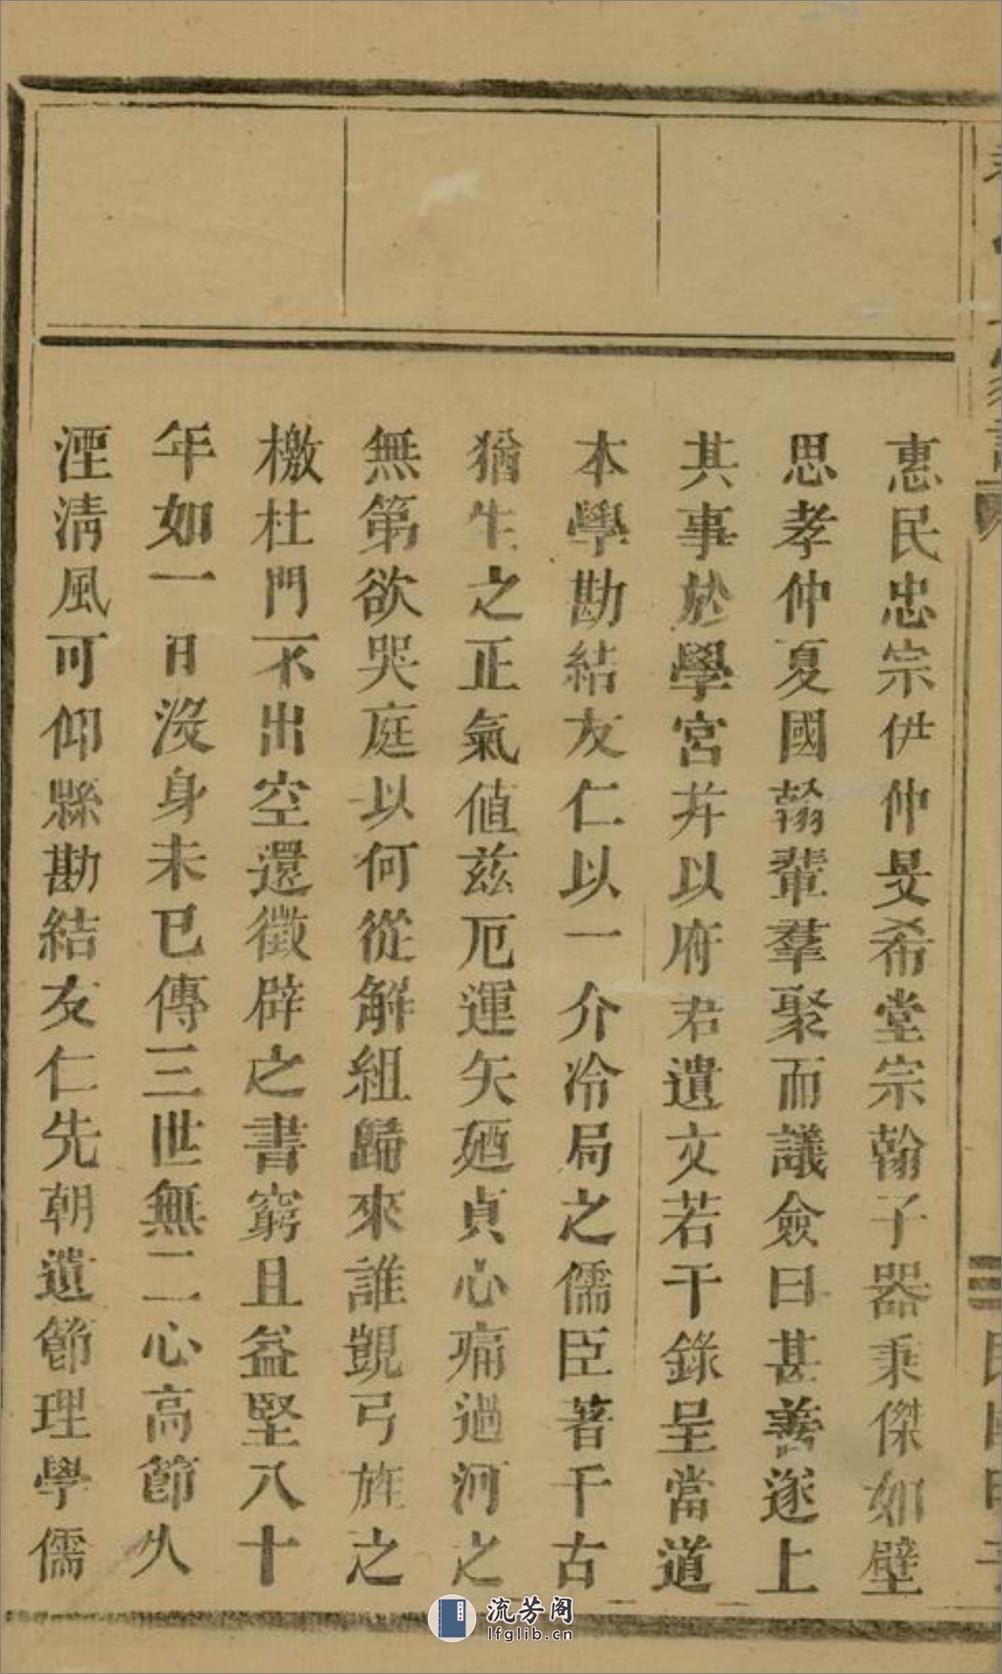 惠民忠宗伊仲旻希堂宗翰子器秉傑如壁
思孝仲夏國翰輩羣聚而議僉曰甚善遂上
其事於學宮并以府君遺文若干錄呈當道
本學勘結友仁以一介冷局之儒臣著千古
猶生之正氣值茲厄運矢廼貞心痛過河之
無第欲哭庭以何從解組歸來誰覬弓旌之
檄杜門不出空還徵辟之書窮且益堅八十
年如一日沒身未已傳三世無二心高節久
湮淸風可仰縣勘結友仁先朝遺節理學儒
流芳阁
lfglib.cn